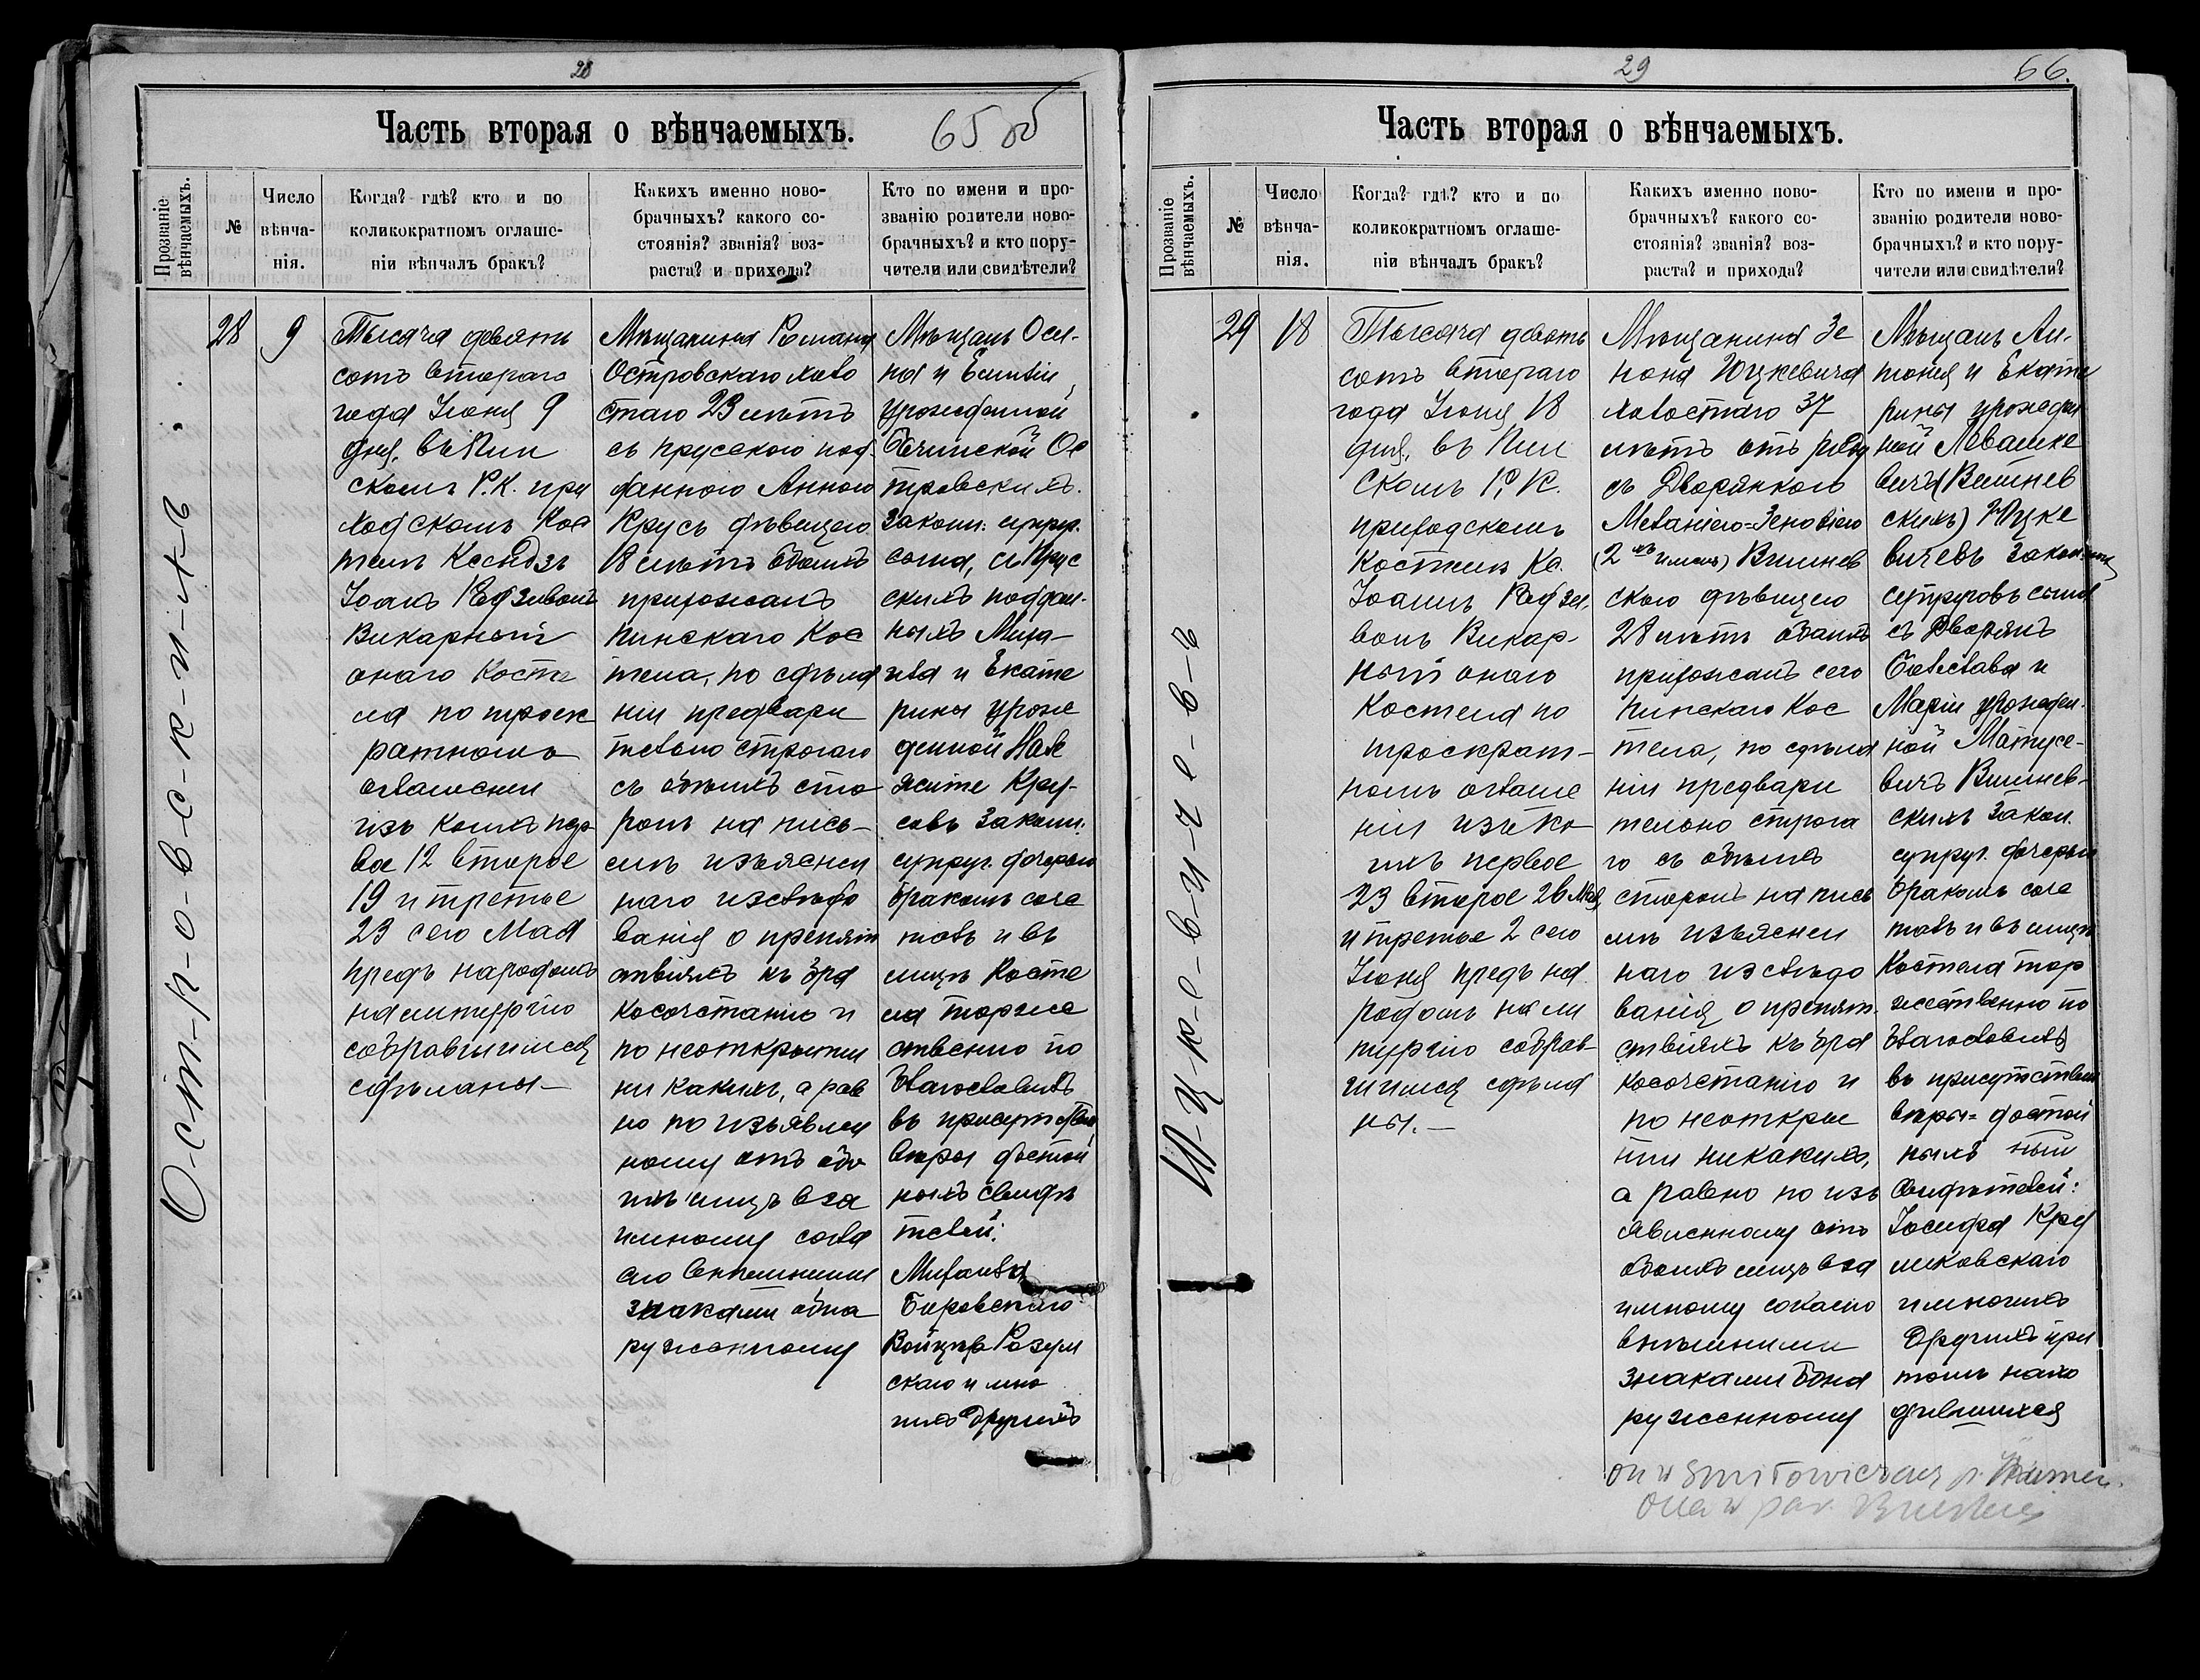 28
Часть вторая о вѣнчаемыхъ.
65 об
Прозваніе вѣнчаемыхъ.
№
Число
вѣнча-
нія.
Когда? гдѣ? кто и по
коликократномъ оглаше-
ніи вѣнчалъ бракъ?
Какихъ именно ново-
брачныхъ? какого со-
стоянія? званія? воз-
раста? и прихода?
Кто по имени и про-
званію родители ново-
брачныхъ? и кто пору-
чители или свидѣтели?
О-с-т-р-о-в-с-к-и-х-ъ
28
9
Тысяча девять
сотъ втораго
года Іюня 9
дня, въ Пин
скомъ Р.К. при
ходскомъ Кос
телѣ Ксендзъ
Іоанъ Радзивонъ
Викарный
онаго Косте
ла по троек
ратномъ
оглашеніи
изъ коихъ пер
вое 12 второе
19 и третье
23 сего Мая
предъ народомъ
на литургію
собравшимся
сдѣланы —
Мѣщанина Романа
Островскаго холо
стаго 23 лѣтъ
съ прусскою под
данною Анною
Крусъ дѣвицею
18 лѣтъ обоихъ
прихожанъ
Пинскаго Кос
тела, по сдѣла
ніи предвари
тельно строгаго
съ обѣихъ сто
ронъ на пись-
мѣ изъяснен
наго изслѣдо
ванія о препят
ствіяхъ къ бра
косочетанію и
по неоткрытіи
ни какихъ, а рав
но по изъявлен
ному отъ обо
ихъ лицъ вза
имному согла
сію внѣшними
знаками обна
руженному
Мѣщанъ Оси-
па и Емиліи
урожденной
Островскихъ.
законн. супруг.
сына, съ Прус
скихъ поддан-
ныхъ Миха-
ила и Екате
рины урож
денной
Кру-
совъ законн.
супруг. дочерью
бракомъ соче
талъ и въ
лицѣ Косте
ла торже
ственно по
благословилъ
въ присутствіи
вѣры достой
ныхъ свидѣ
телей:
Михаила
Боровскаго
Войцеха Разум
скаго и мно
гихъ другихъ
29
66.
Часть вторая о вѣнчаемыхъ.
Прозваніе вѣнчаемыхъ.
№
Число
вѣнча-
нія.
Когда? гдѣ? кто и по
коликократномъ оглаше-
ніи вѣнчалъ бракъ?
Какихъ именно ново-
брачныхъ? какого со-
стоянія? званія? воз-
раста? и прихода?
Кто по имени и про-
званію родители ново-
брачныхъ? и кто пору-
чители или свидѣтели?
Ю-ц-к-е-в-и-ч-е-в-ъ
29
18
Тысяча девять
сотъ втораго
года Іюня 18
дня, въ Пин
скомъ Р. К.
приходскомъ
Костелѣ Кс.
Іоаннъ Радзи
вонъ Викар-
ный онаго
Костела по
троекрат-
номъ оглаше
ніи изъ ко
ихъ первое
23 второе 26 Мая
и третье 2 сего
Іюня предъ на
родомъ на ли
тургію собрав
шимся сдѣла
ны. —
Мѣщанина Зе
нона Юцкевича
холостаго 37
лѣтъ отъ роду
съ Дворянкою
Меланіею-Зеновіею
(2 хъ именъ) Вишнев
скою дѣвицею
28 лѣтъ обоихъ
прихожанъ сего
Пинскаго Кос
тела, по сдѣла
ніи предвари
тельно строга
го съ обѣихъ
сторонъ на пись
мѣ изъяснен
наго изслѣдо
ванія о препят.
ствіяхъ къ бра
косочетанію и
по неоткры
тіи никакихъ,
а равно по изъ
явленному отъ
обоихъ лицъ вза
имному согласію
внѣшними
знаками обна
руженному
Мѣщанъ Ан-
тонія и Екате
рины урожден
ной Левашке
вичъ (Вишнев
скихъ) Юцке
вичевъ законныхъ
супруговъ сына
съ Дворянъ
Болеслава и
Маріи урожден-
ной Матусе-
вичъ Вишнев-
скихъ закон.
супруг. дочерью
бракомъ соче
талъ и въ лицѣ
Костела тор
жественно по
благословилъ
въ присутствіи
вѣры-достой
ныхъ
свидѣтелей:
Іосифа Кру
ликовскаго
и многихъ
другихъ при
томъ нахо
дившихся
on w
ona w par.